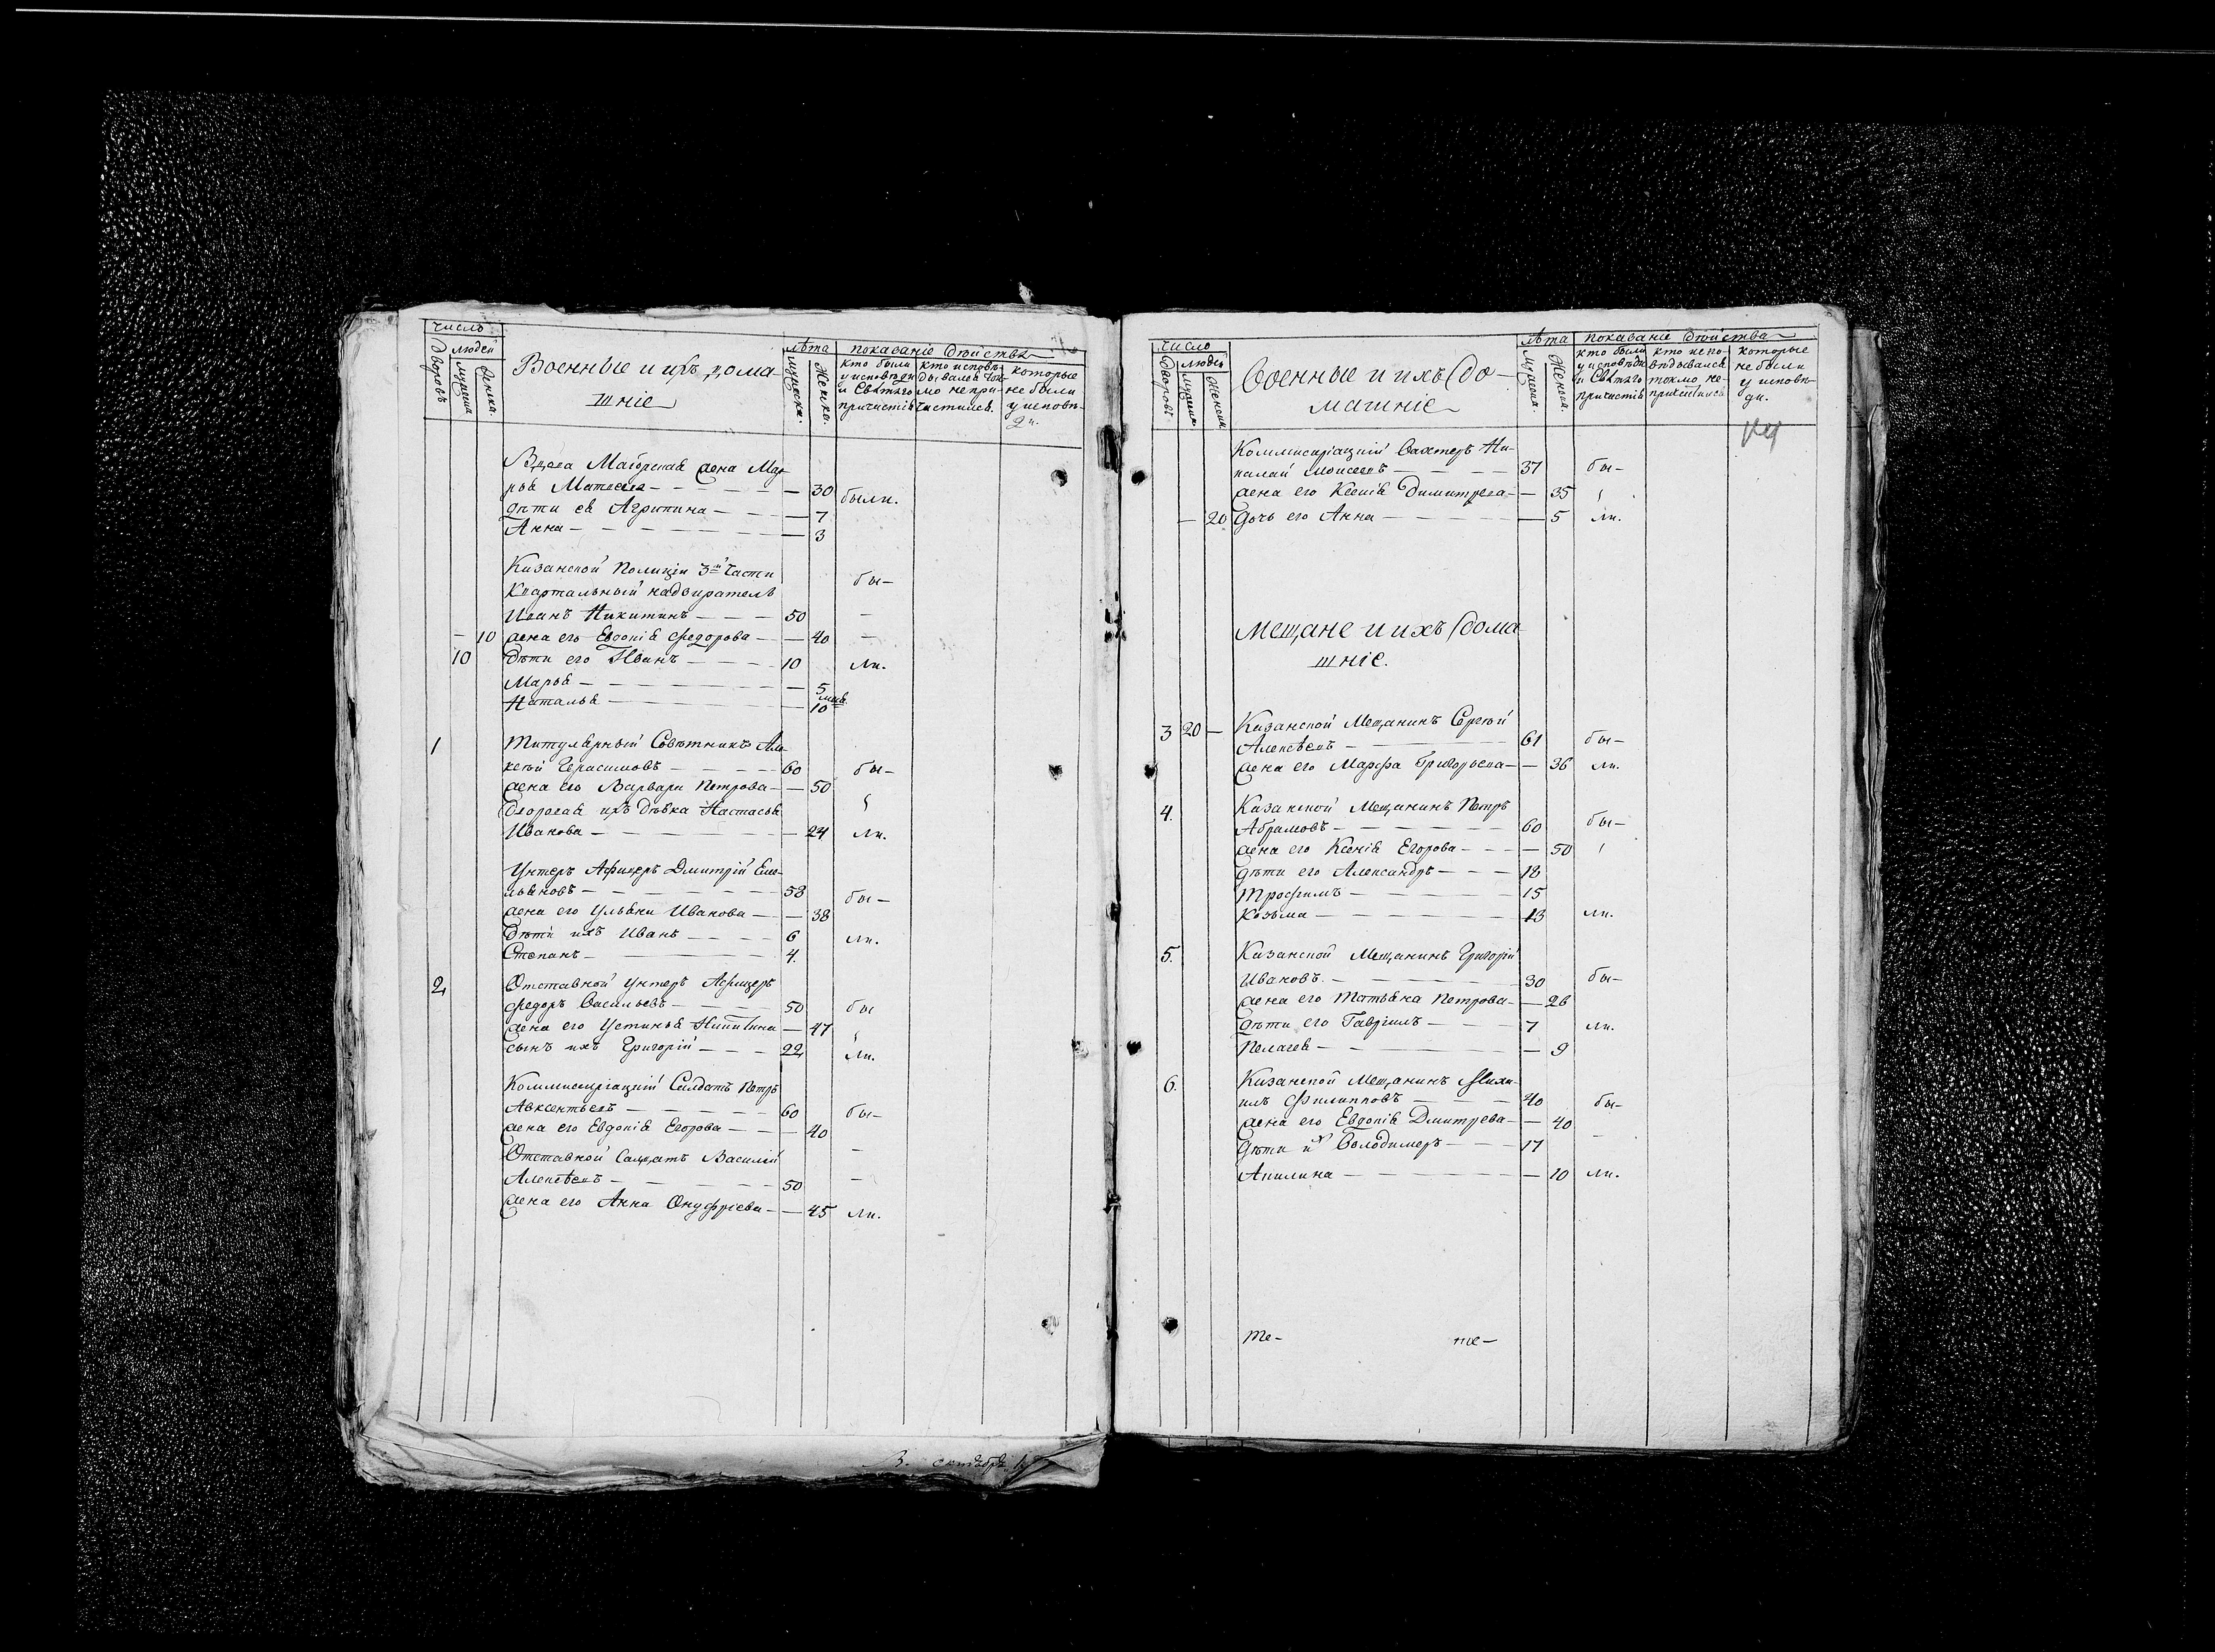 число
Дворовъ
людей
мужеска
Женска.
Военные и ихъ дома-
шніе
лѣта
мужеска.
Женско.
показаніе дѣйства
кто были у исповѣди и Святаго причастія
кто исповѣдывался токмо непричастился.
которые не были у исповѣди.
Вдова Маіорская жена Мар-
ья Матвеева — 30 были.
дѣти ея Агрипина — 7
Анна — 3
Казанской Полиціи 3й Части бы-
Квартальный надзиратель
Иванъ Никитинъ — 50
— 10 жена его Евдокія Федорова — 40
10 Дѣти его Иванъ — 10 ли.
Марья — 5
Наталья — 10
1 Титулярный Совѣтникъ Але-
ксѣй Герасимовъ — 60 бы-
жена его Варвара Петрова — 50
Дворовая ихъ дѣвка Настасья
Иванова — 24 ли.
Унтеръ Афицеръ Дмитрій Еме-
льяновъ — 58 бы-
жена его Ульяна Иванова — 38
Дѣти ихъ Иванъ — 6 ли.
Степанъ — 4.
2 Отставной унтеръ Афицеръ
Федоръ Васильевъ — 50 бы
жена его Устинья Никитина — 47
сынъ ихъ Григорій — 22 ли.
Коммисаріацкій Салдатъ Петръ
Авксентьевъ — 60 бы-
жена его Евдокія Егорова — 40
Отставной Салдатъ Василій
Алексѣевъ — 50
жена его Анна Онуфріева — 45 ли.
В. октябр
число
Дворовъ
людей
мужеска.
Женска
Военные и ихъ до-
машніе
лѣта
Мужеска.
Женска.
показаніе Дѣйства
кто были у исповѣди и Святаго причастія
кто исповѣдывался токмо не причастился
которые не были у исповѣди.
Коммисаріацкій Вахтеръ Ни-
калай Моисеевъ — 37 бы-
жена его Ксенія Димитрева — 35
— 20 Дочь его Анна — 5 ли.
Мещане и ихъ дома
шніе.
3 20 — Казанской Мещанинъ Сергѣй
Алексѣевъ — 61 бы-
жена его Марфа Григорьева — 36 ли.
4. Казанской Мещанинъ Петръ
Абрамовъ — 60 бы-
жена его Ксенія Егорова — 50
дѣти его Александръ — 18
Трофимъ — 15
Козьма — 13 ли.
5. Казанской Мещанинъ Григорій
Ивановъ. — 30 бы-
жена его Татьяна Петрова — 26
дѣти его Гавріилъ — 7 ли.
Пелагея — 9
6. Казанской Мещанинъ Миха-
илъ Филипповъ — 40 бы-
жена его Евдокія Дмитрева — 40
Дѣти их Володимеръ — 17
Акилина — 10 ли.
те- те-